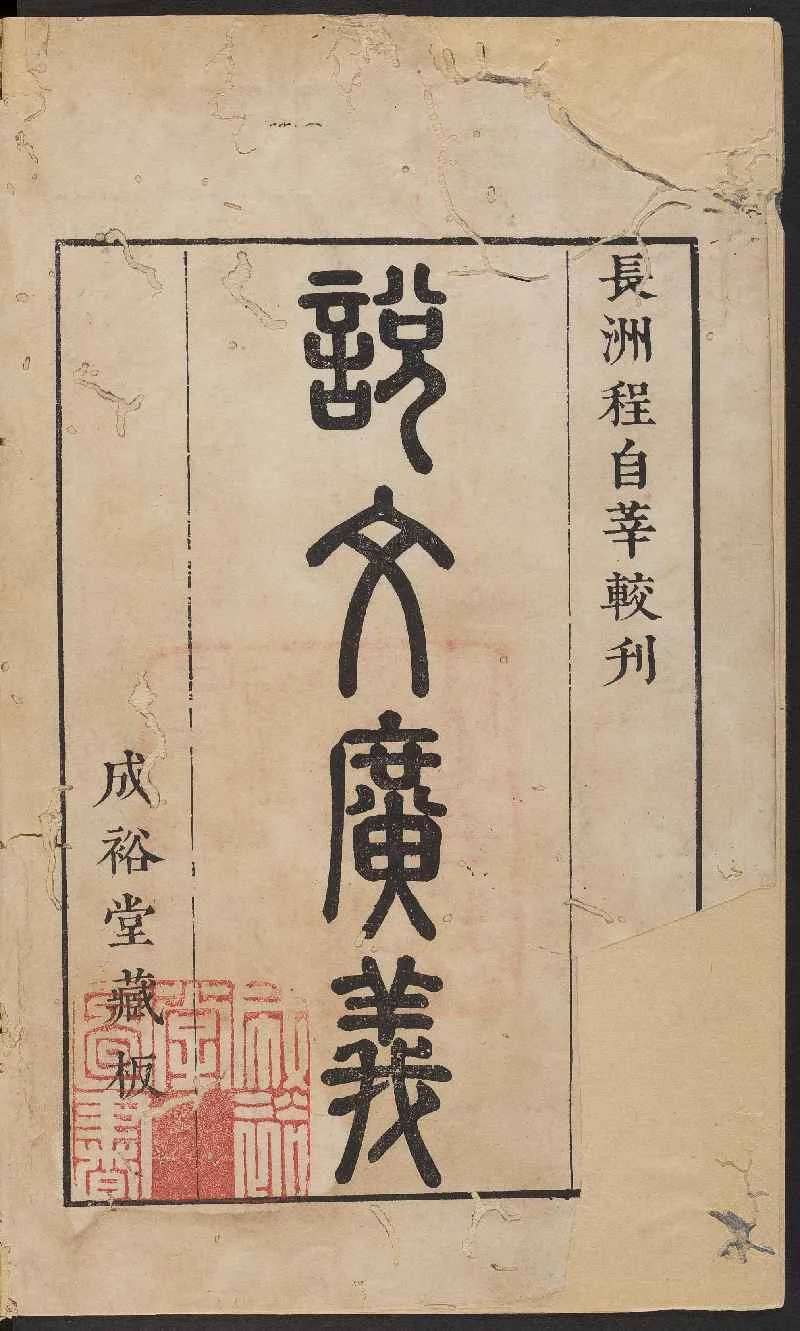 長洲程自莘較刊
說文廣義
成裕堂藏板